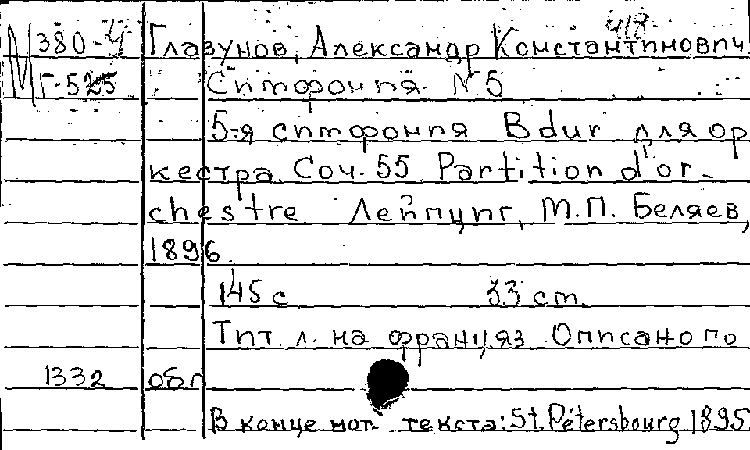 418
М 380-4 Глазунов, Александр Константинович
Г-525 Симфония N 5
5-я симфония B dur для ор
кестра Соч. 55 Partition d'or-
chestre Лейпциг, М.П. Беляев,
1896
145 с 33 cm.
Тит. л. на француз. Описано по
1332 обл
В конце нот. текста: St. Pétersbourg 1895